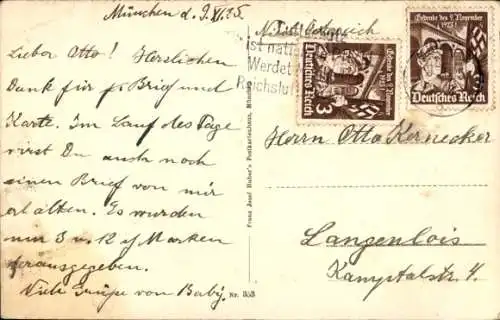 München d. 9.XI.35.
Lieber Otto! Herzlichen
Dank für Brief und
Karte. Im Lauf des Tage
wirst Du auch noch
einen Brief von mir
erhalten. Es wurden
nur 3 u. 12 Marken
herausgegeben.
Viele Grüße von Baby.
Nr. 353
Franz Josef Huber's Postkartenhaus, München
ist
Werdet
Reichsluf
Gedenke des 9. November
1923!
Deutsches Reich
3
Gedenke des 9. November
1923!
Deutsches Reich
Herrn Otto Kernecker
Langenlois
Kamptalstr. 4.